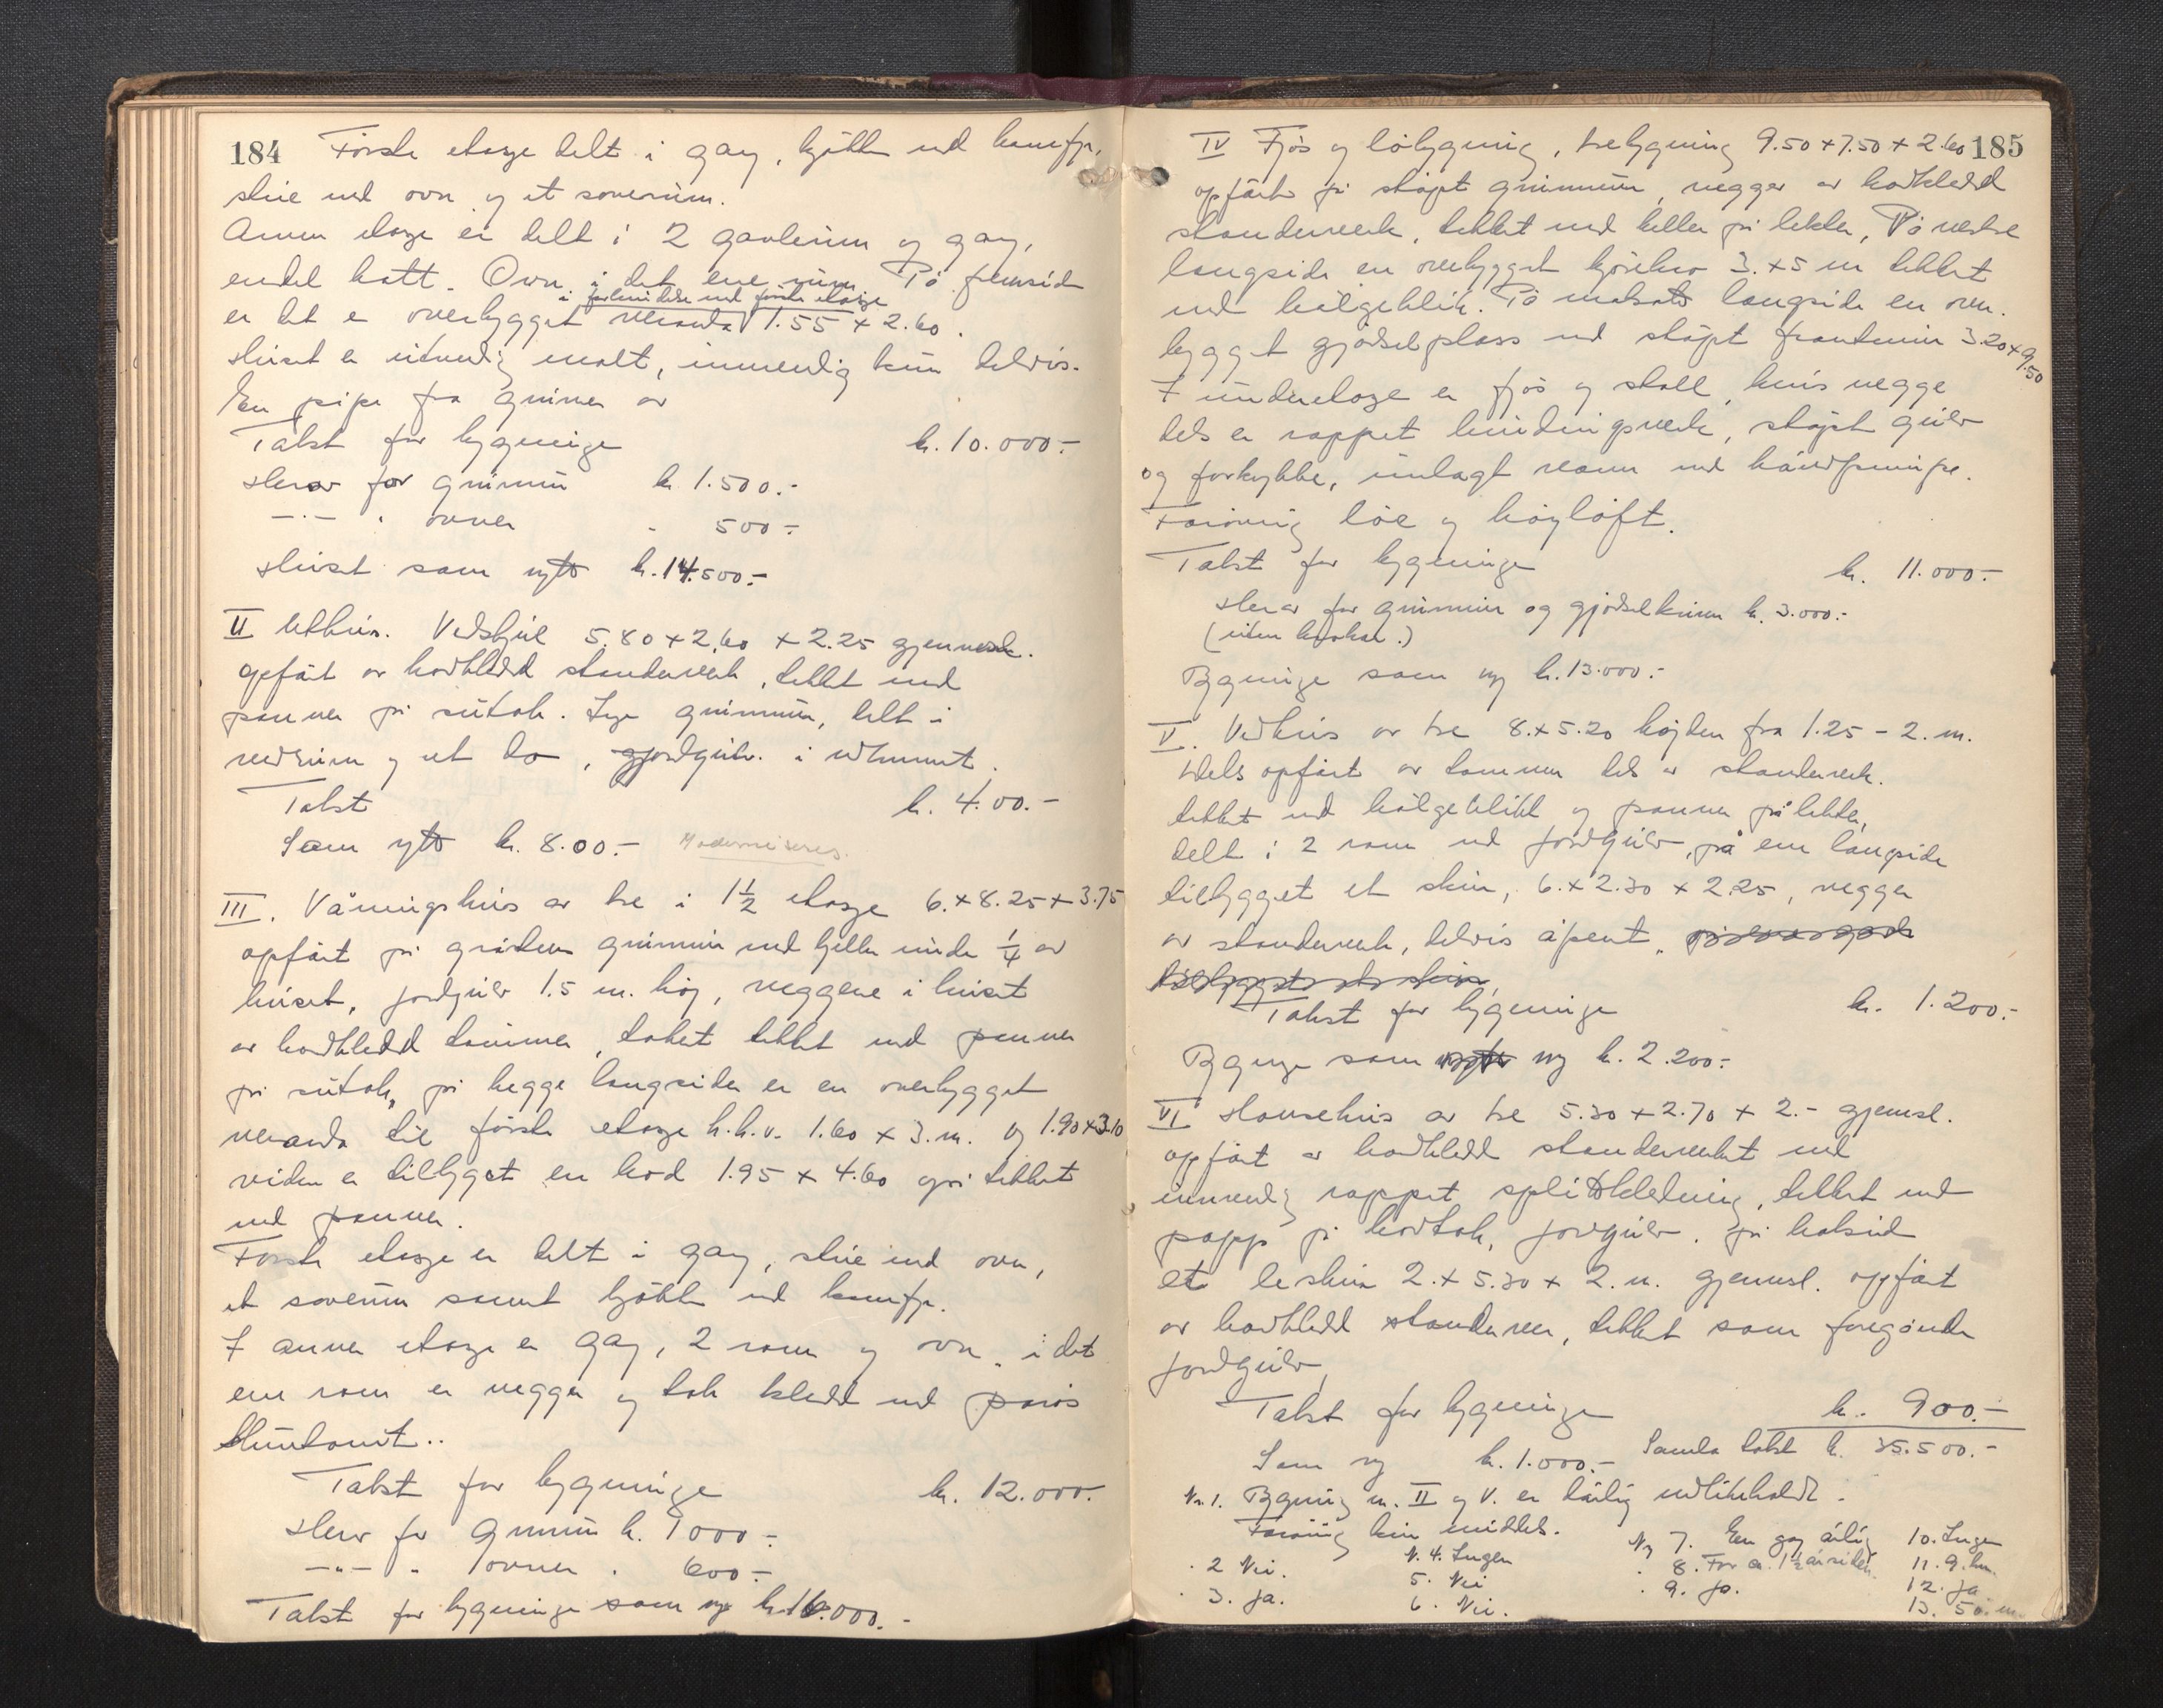 184
Første etasje delt i gang, kjökken med komfyr,
stue med ovn og et soverum.
Annen etasje er delt i 2 gavlerum og gang,
endel kott. Ovn i det ene rum. På fremsiden
i forbindelse med første etasje
er det en overbygget veranda 1.55 x 2.60.
Huset er utvendig malt, innvendig kun delvis.
En pipe fra grunnen av
Takst for bygningen kr. 10.000.-
Herav for grunnmur kr 1.500.-
—"— " ovner " 500.-
Huset som nytt kr. 14.500.-
II Uthus. Vedskjul 5.80 x 2.60 x 2.25 gjennemsn.
Opført av bordkledd stenderverk, tekket med
panner på sutak. Ingen grunnmur, delt i
vedrum og et do, jordgulv i
Takst kr. 4.00.-
Som nytt kr. 8.00.- Moderniseres.
III. Våningshus av tre i 1½ etasje 6. x 8.25 x 3.75
opført på gråsten grunnmur med kjeller under ¼ av
huset, jordgulv 1.5 m. høy, veggene i huset
av bordkledd tømmer, taket tekket med panner
på sutak, på begge langsider er en overbygget
veranda til første etasje h.h.v. 1.60 x 3. m. og 1.90 x 3.10
viden er tilbygget en bod 1.95 x 4.60 også tekket
med panner.
Første etasje er delt i gang, stue med ovn,
et soverum samt kjökken med komfyr.
I annen etasje er gang, 2 rom og ovn. i det
ene rom er vegger og tak kledd med panis
Takst for bygningen kr. 12.000.-
Herav for grunnmur kr. 1000.-
—"— " ovner " 600.-
Takst for bygningen som ny kr. 16.000.-
185
IV Fjøs og løbygning, trebygning 9.50 x 7.50 x 2.60
opført på støpt grunnmur, vegger av bordkledd
stenderverk, tekket med heller på lekter, På vestre
langside en overbygget kjørebro 3. x 5 m tekket
med bølgeblik. På motsatt langside en over-
bygget gjødselplass med støpt frontmur 3.20 x 9.50
I underetasje er fjøs og stall, hvis vegger
dels er rappet bindingsverk, støpt gulv
og forkrybbe, innlagt vann med håndpumpe.
Forøvrig löe og høyloft.
Takst for bygningen kr. 11.000.-
Herav for grunnmur og gjødselkum kr. 3.000.-
(uten )
Bygningen som ny kr. 13.000.-
V. Vedhus av tre 8. x 5.20 højden fra 1.25 - 2. m.
Dels opført av tømmer dels av stenderverk.
tekket med bölgeblikk og panner på lekter,
delt i 2 rom med jordgulv, på ene langside
tilbygget et skur, 6. x 2.30 x 2.25, vegger
av stenderverk, delvis åpent.
Takst for bygningen kr. 1.200.-
Bygningen som ny kr. 2.200.-
VI Hønsehus av tre 5.30 x 2.70 x 2.- gjennemsn.
opført av bordkledd stenderverk med
innvendig rappet splittkledning, tekket med
papp på bordtak, jordgulv. På baksiden
et leskur 2. x 5.30 x 2. m. gjennemsn. opført
av bordkledd stenderverk, tekket som foregående
jordgulv,
Takst for bygningen kr. 900.-
Som ny kr. 1.000.- Samla takst kr. 35.500.-
Nr. 1. Bygning nr. II og V. er dårlig vedlikeholdt.
Forøvrig bra middels.
" 2 Nei.
" 3. Ja.
Nr. 4. Ingen
5. Nei
6. Nei.
Nr 7. En gang årlig
" 8. For ca. 1½ år siden
" 9. Ja.
10. Ingen
11. 9. km.
12. Ja
13. 50. m.